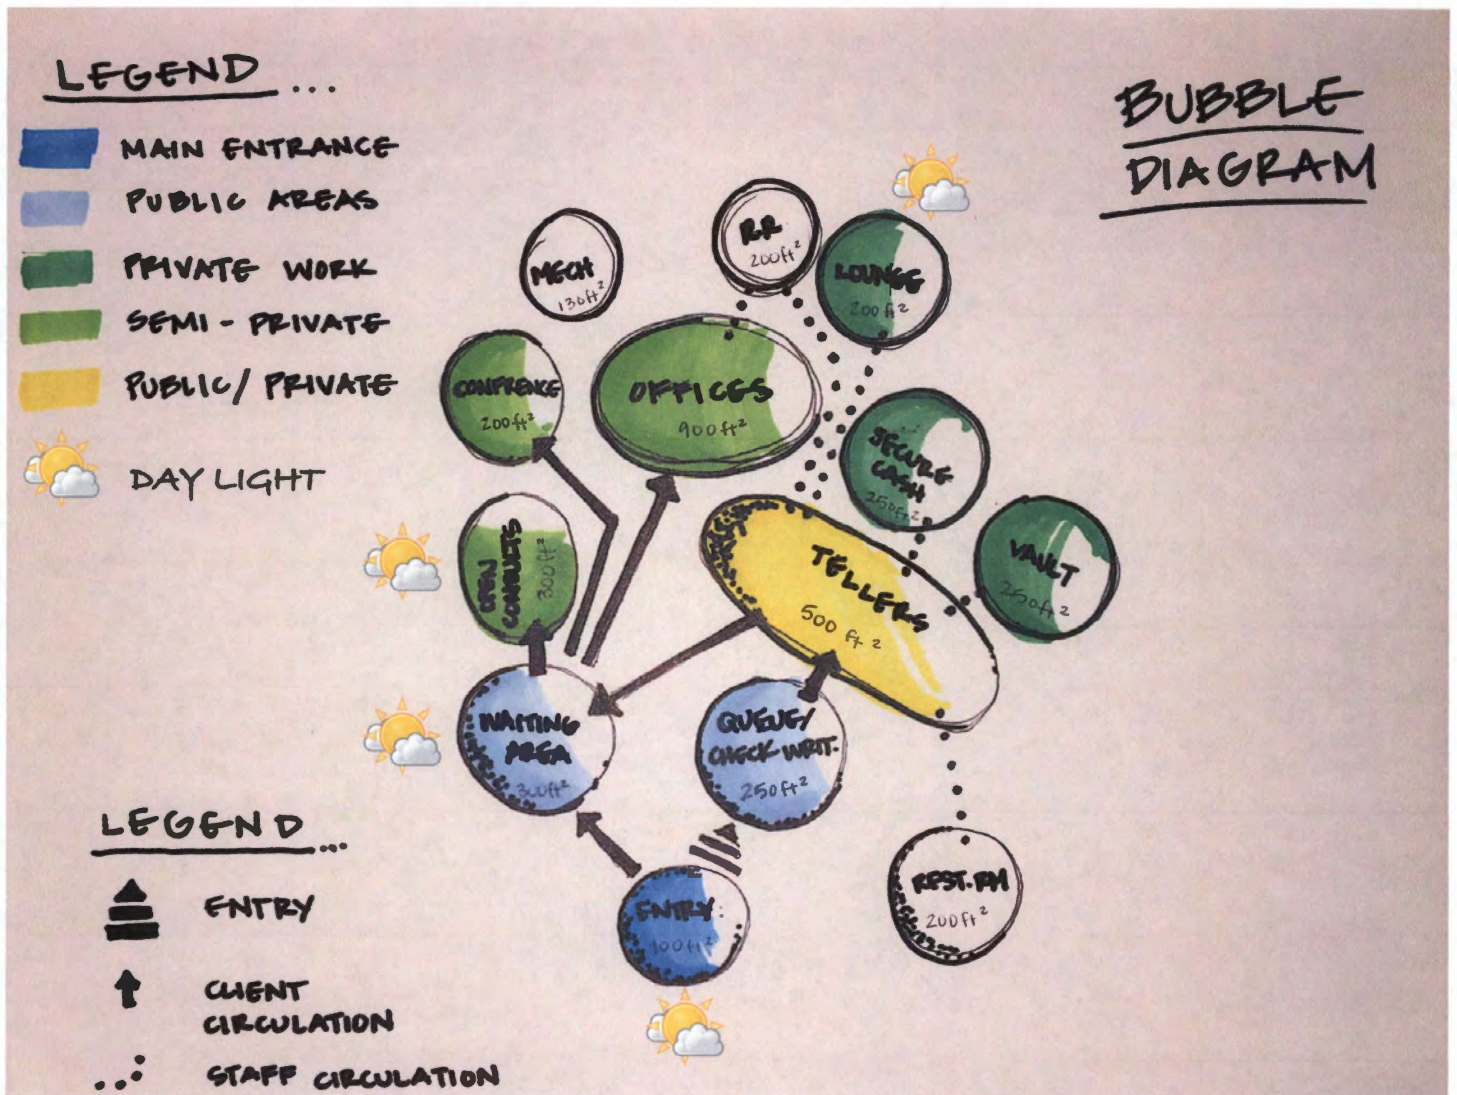 LEGEND...
MAIN ENTRANCE
PUBLIC AREAS
PRIVATE WORK
SEMI-PRIVATE
PUBLIC/PRIVATE
DAY LIGHT
BUBBLE
DIAGRAM
MECH
130ft²
RR
200ft²
LOUNGE
200ft²
CONFRENCE
200ft²
OFFICES
900ft²
SECURE
CASH
250ft²
OPEN
CONSULTS
300ft²
TELLERS
500 ft²
VAULT
250ft²
WAITING
AREA
300ft²
QUEUE/
CHECK WRIT.
250ft²
ENTRY
100ft²
REST.RM
200ft²
LEGEND...
ENTRY
CLIENT
CIRCULATION
STAFF CIRCULATION